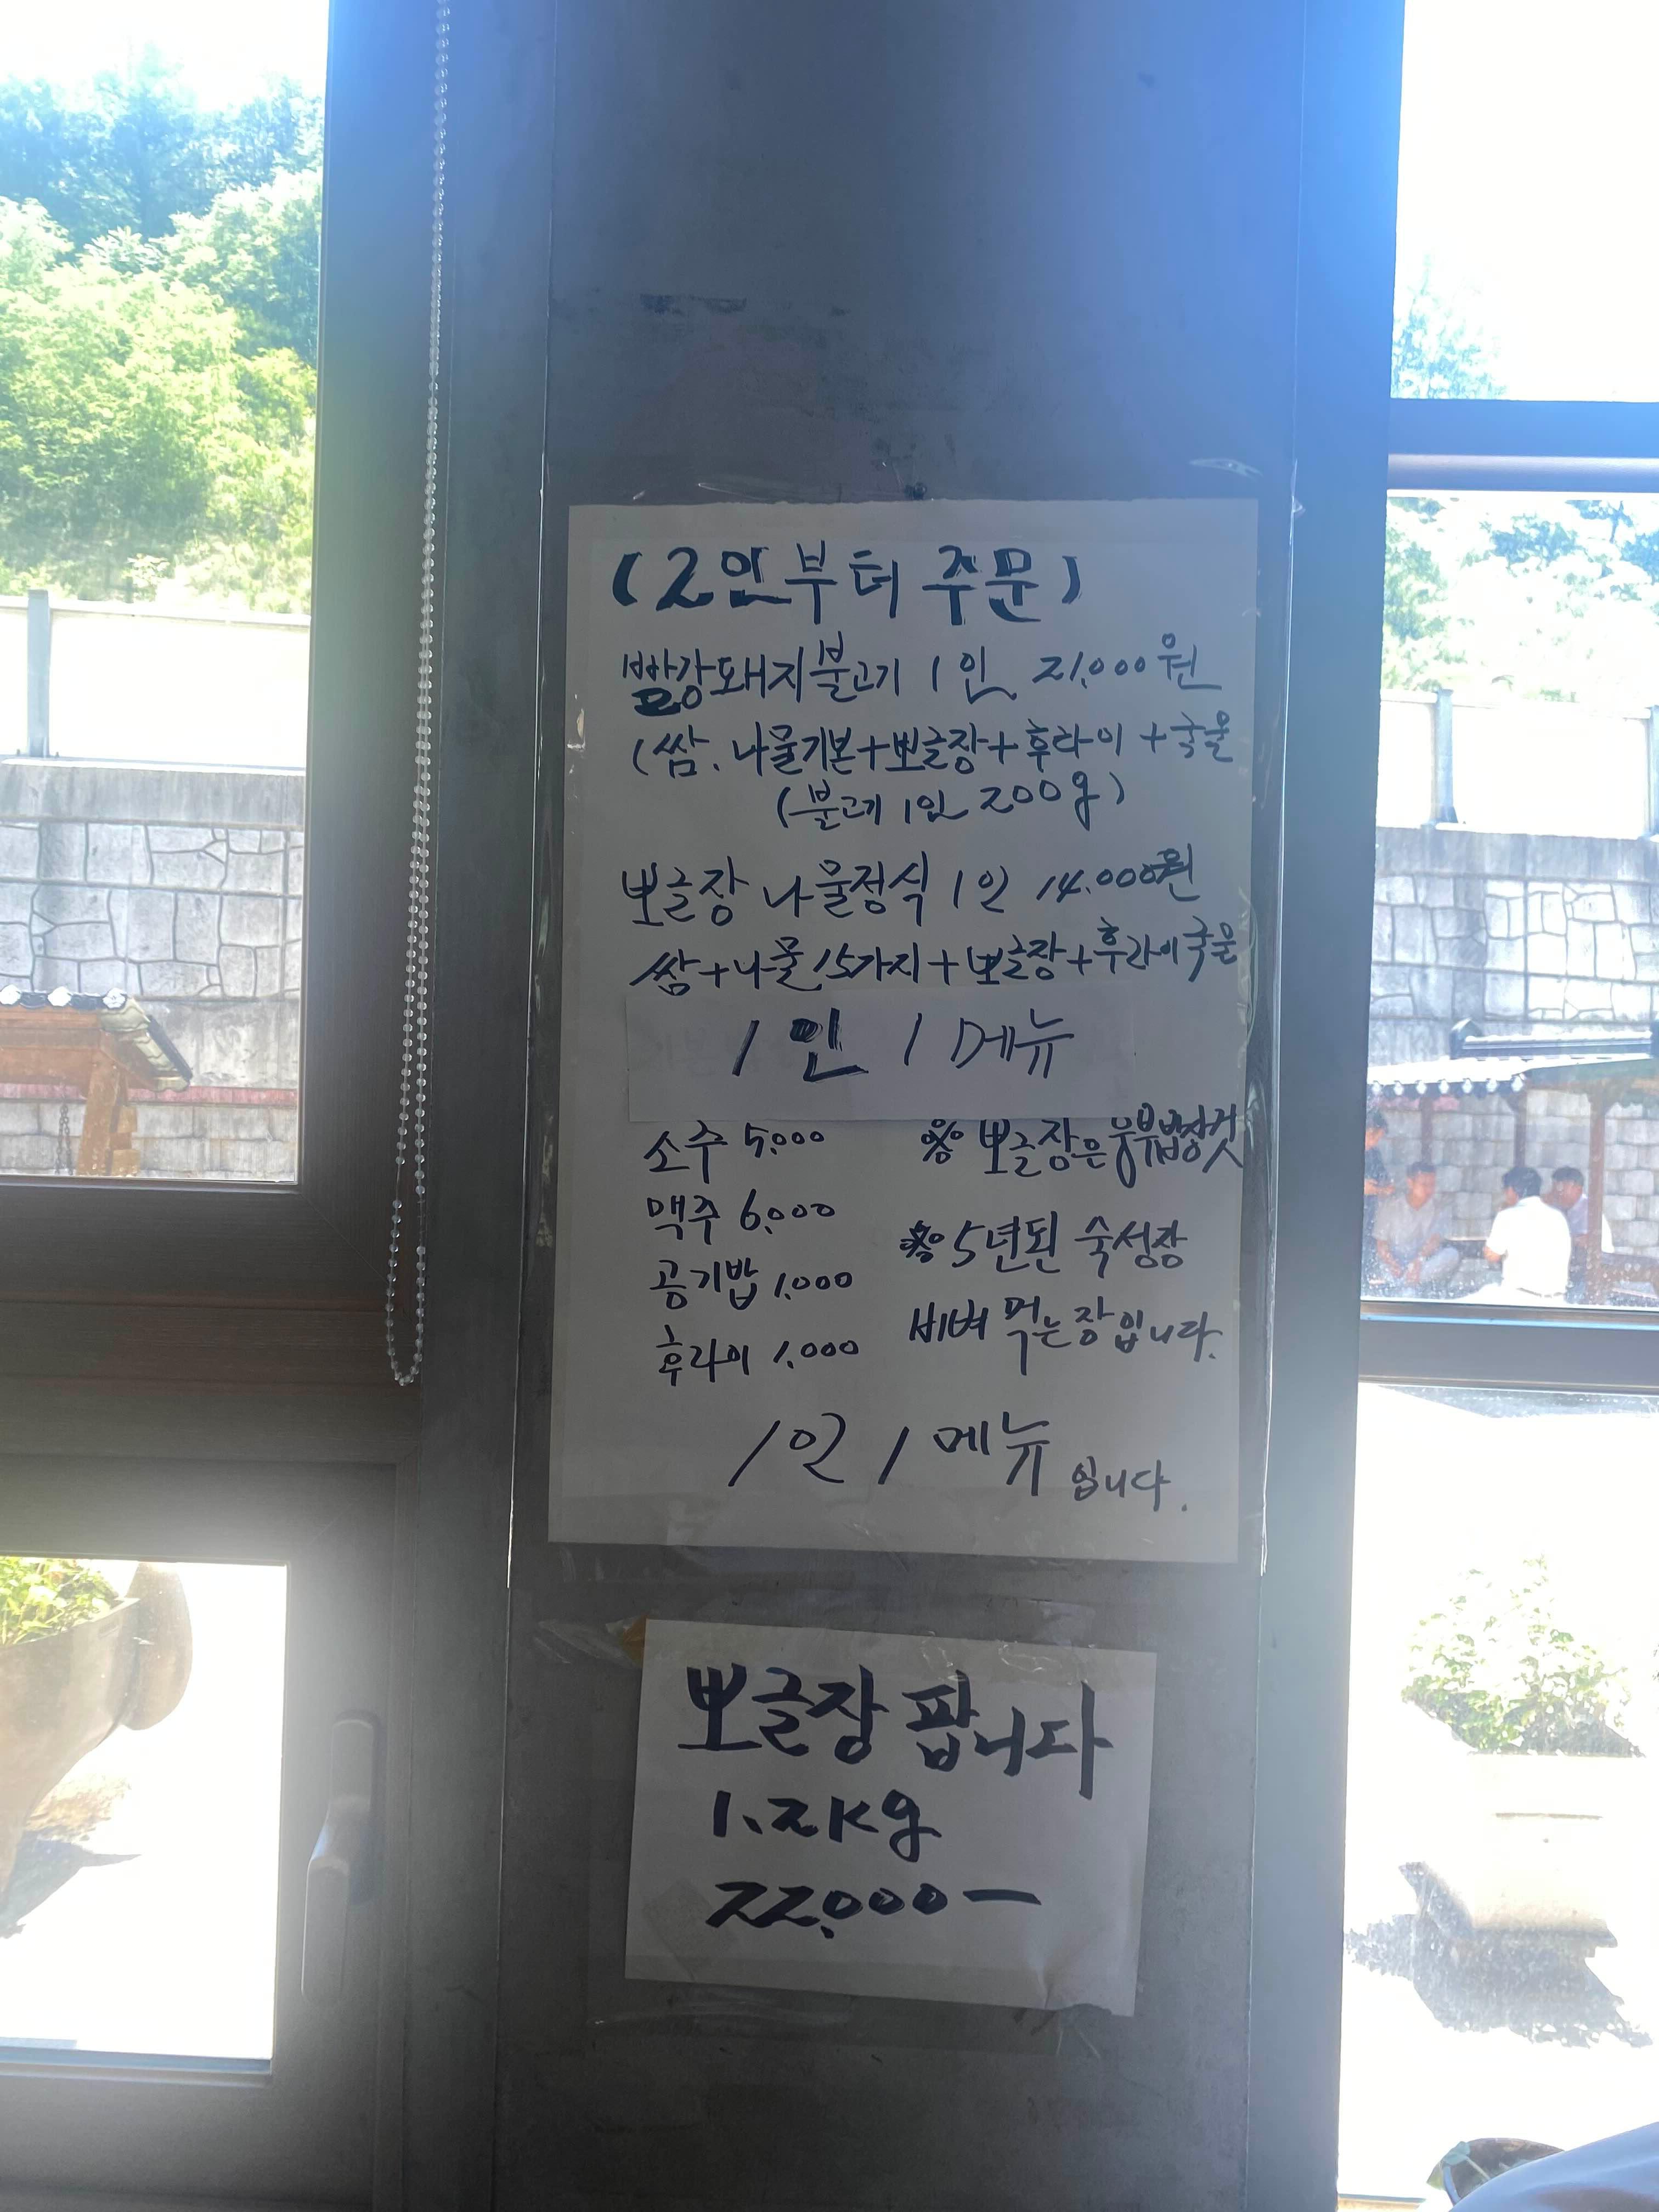 (2인부터 주문)
빨강돼지불고기 1인 21,000원
(쌈, 나물기본+뽀글장+후라이+국물
(불고기 1인 200g)
뽀글장 나물정식 1인 14,000원
쌈+나물15가지+뽀글장+후라이국물
1인 1메뉴
소주 5,000
맥주 6,000
공기밥 1,000
후라이 1,000
※ 뽀글장은
※ 5년된 숙성장
비벼 먹는장입니다.
1인 1메뉴입니다.
뽀글장 팝니다
1.2kg
22,000-